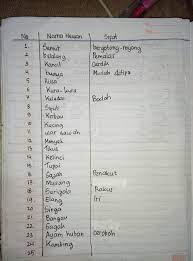 No Nama Hewan Sifat
1. Semut bergotong-royong
2 Belalang Pemalas
3 Kancil Cerdik
4 buaya Mudah ditipu
5 Rusa
6 Kura-kura
7 Keledai Bodoh
8 Siput
9 Kerbau
10 Kucing
11 ular sawah
12 Monyet
13 Tikus
14 Kelinci
15 Tupai
16 Gajah Penakut
17 Musang
18 Serigala Rakus
19 Elang Iri
20 Singa
21 Bangau
22 Gagak
23 Ayam hutan Ceroboh
24 Kambing
25